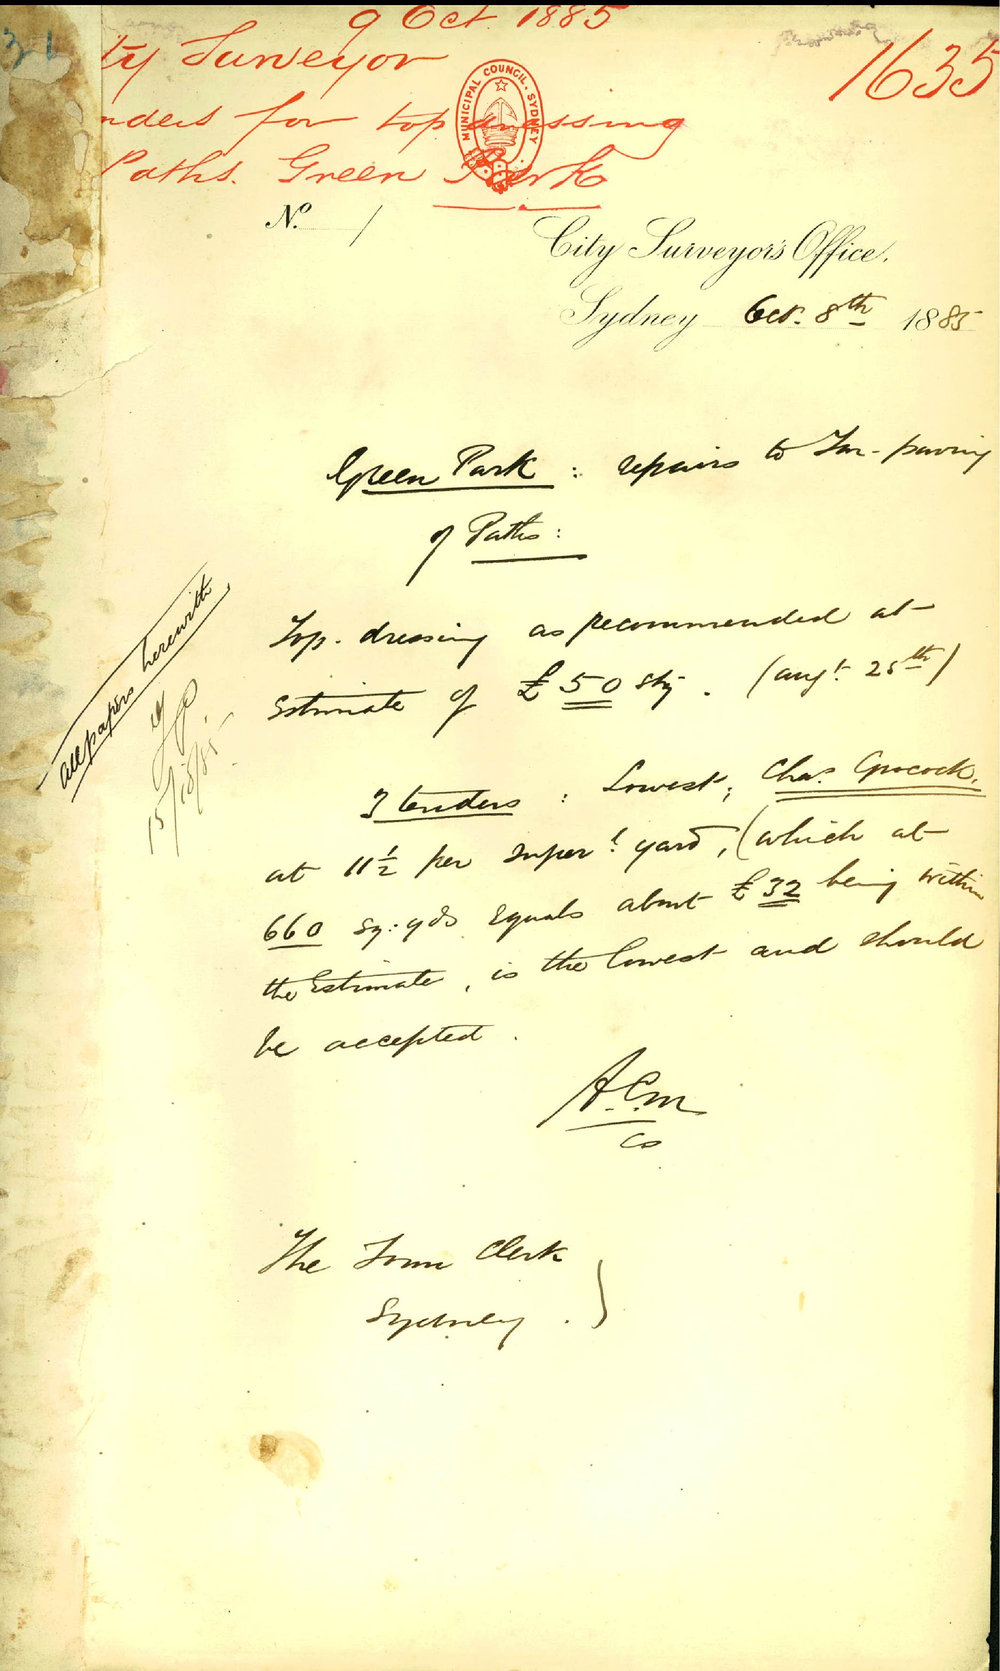 9 Oct. 1885
ty Surveyor
1635
nders for top dressing
Paths. Green Park
MUNICIPAL COUNCIL. SYDNEY.
No. 1
City Surveyor's Office.
Sydney Oct. 8th 1885
Green Park : repairs to Tar-paving
of Paths :
Top-dressing as recommended at
Estimate of £50 stg. (Augt. 25th)
All papers herewith
15/10/85
3 tenders : Lowest; Chas. Grocock.
at 11½ per super! yard, (which at
660 sq: yds equals about £32 being within
the Estimate, is the lowest and should
be accepted.
A.C.M
CS
The Town Clerk
Sydney.